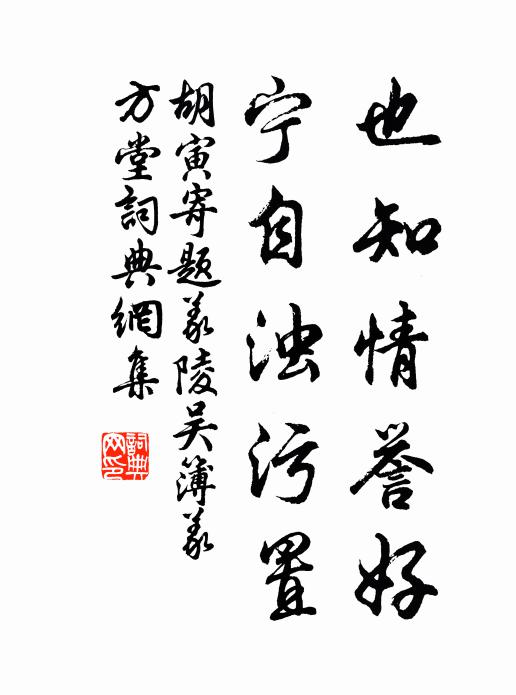 也知情誉好
宁自浊污置
胡寅寄题义陵吴簿义
方堂詞典網集
詞典
网印